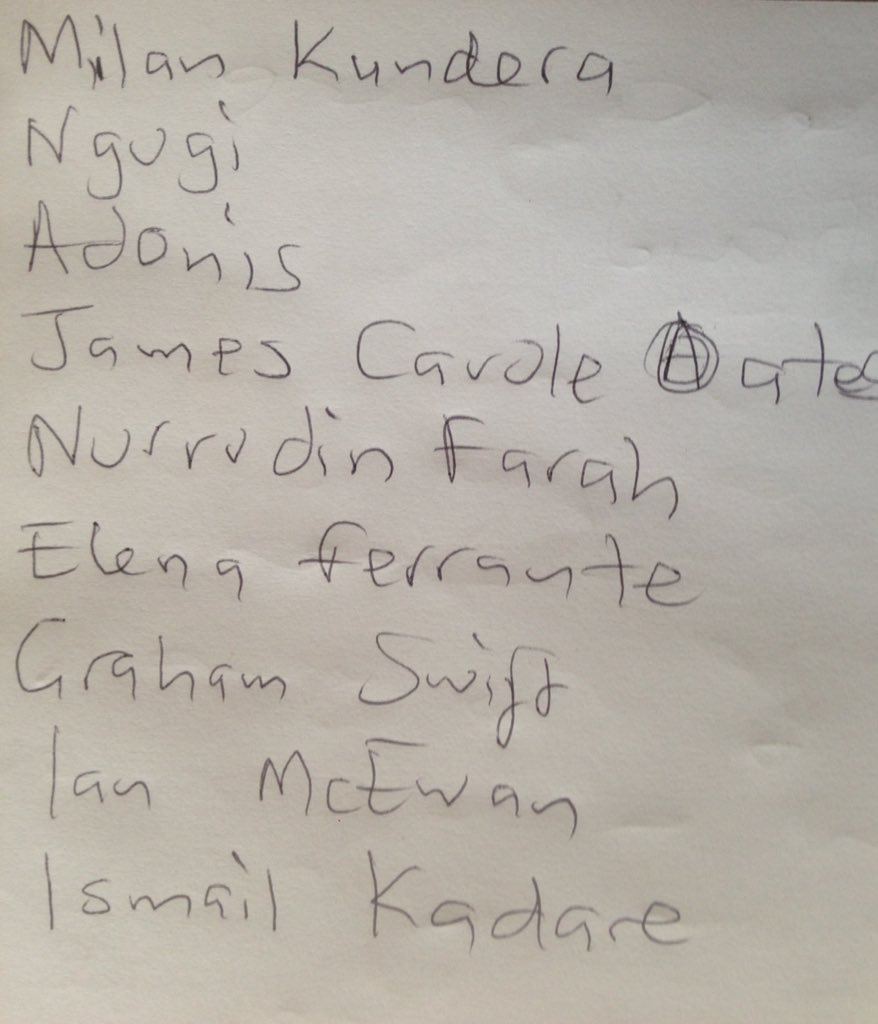 Milan Kundera
Ngugi
Adonis
James Carole Oates
Nurrudin Farah
Elena Ferrante
Graham Swift
Ian McEwan
Ismail Kadare